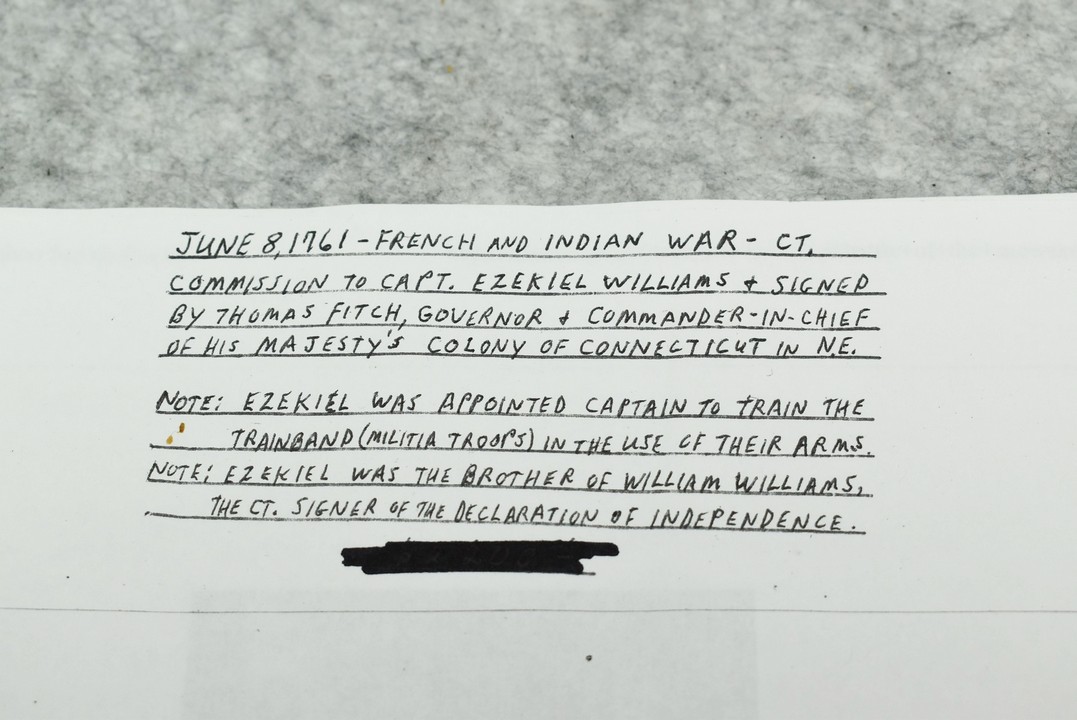 JUNE 8, 1761 - FRENCH AND INDIAN WAR - CT.
COMMISSION TO CAPT. EZEKIEL WILLIAMS & SIGNED
BY THOMAS FITCH, GOVERNOR & COMMANDER-IN-CHIEF
OF HIS MAJESTY'S COLONY OF CONNECTICUT IN N.E.
NOTE: EZEKIEL WAS APPOINTED CAPTAIN TO TRAIN THE
TRAINBAND (MILITIA TROOPS) IN THE USE OF THEIR ARMS.
NOTE: EZEKIEL WAS THE BROTHER OF WILLIAM WILLIAMS,
THE CT. SIGNER OF THE DECLARATION OF INDEPENDENCE.